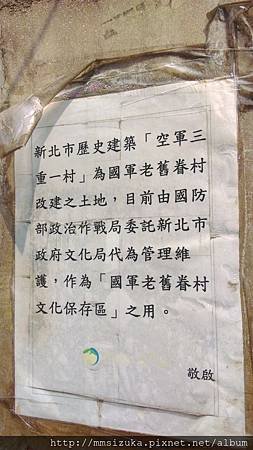 新北市歷史建築「空軍三
重一村」為國軍老舊眷村
改建之土地，目前由國防
部政治作戰局委託新北市
政府文化局代為管理維
護，作為「國軍老舊眷村
文化保存區」之用。
敬啟
http://mmsizuka.pixnet.net/album